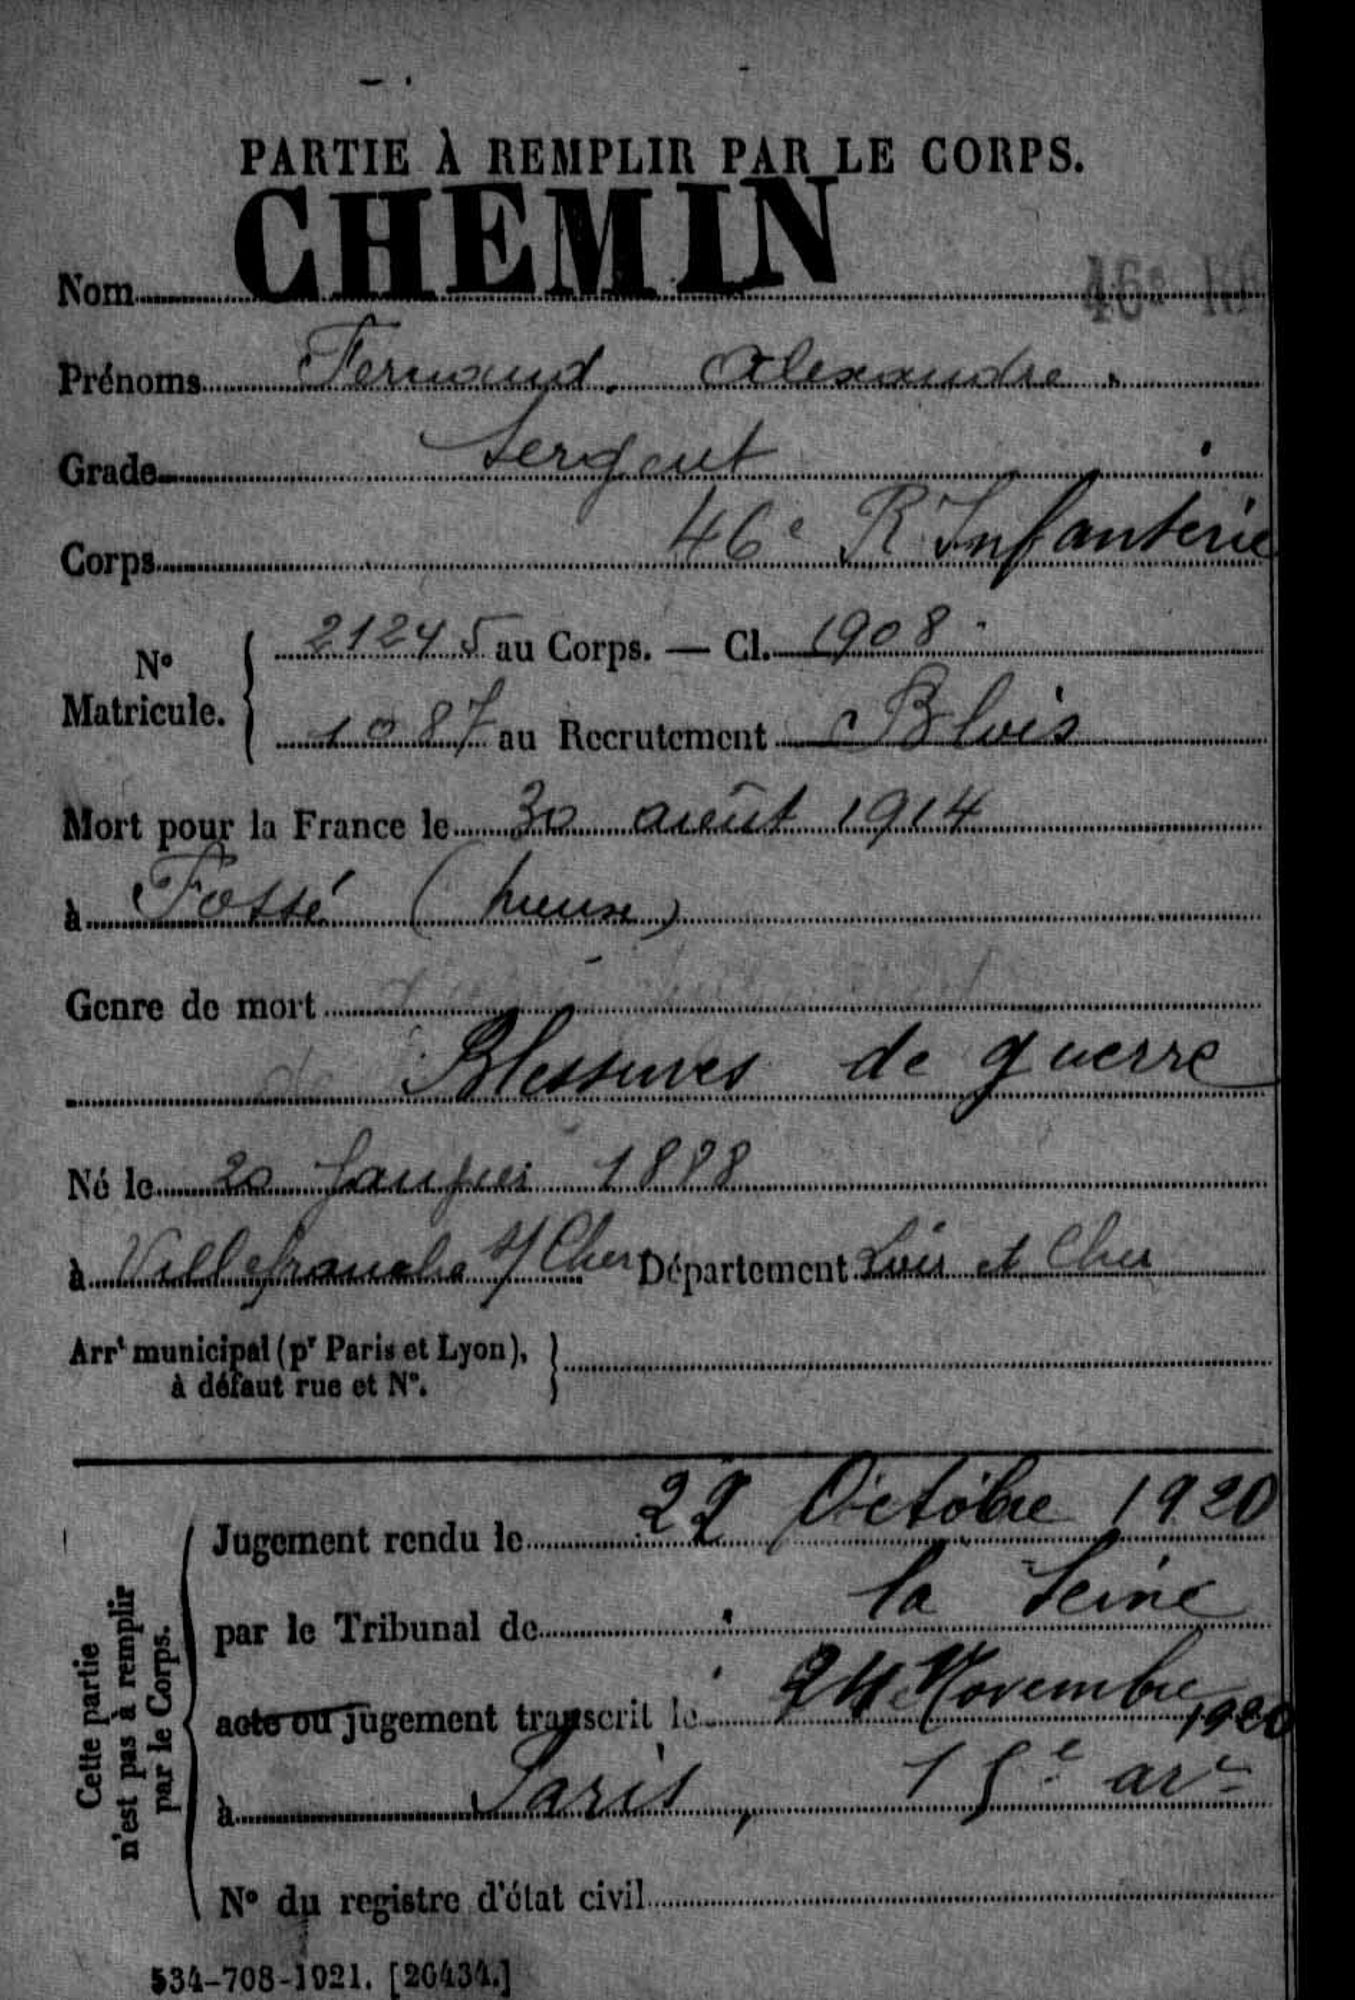 PARTIE À REMPLIR PAR LE CORPS.
Nom CHEMIN
46e
Prénoms Fernand. Alexandre.
Grade Sergent
Corps 46e R Infanterie
No Matricule. { 21245 au Corps. — Cl. 1908.
1087 au Recrutement Blois
Mort pour la France le 30 août 1914
à Fossé (Meuse)
Genre de mort
Blessures de guerre
Né le 20 Janvier 1888
à Villefranche s/ Cher Département Loir et Cher
Arrt municipal (pr Paris et Lyon), }
à défaut rue et No.
Cette partie
n'est pas à remplir
par le Corps.
Jugement rendu le 22 Octobre 1920
par le Tribunal de la Seine
acte ou jugement transcrit le 24 Novembre 1920
à Paris, 15e arr
No du registre d'état civil
534-708-1921. [26434.]